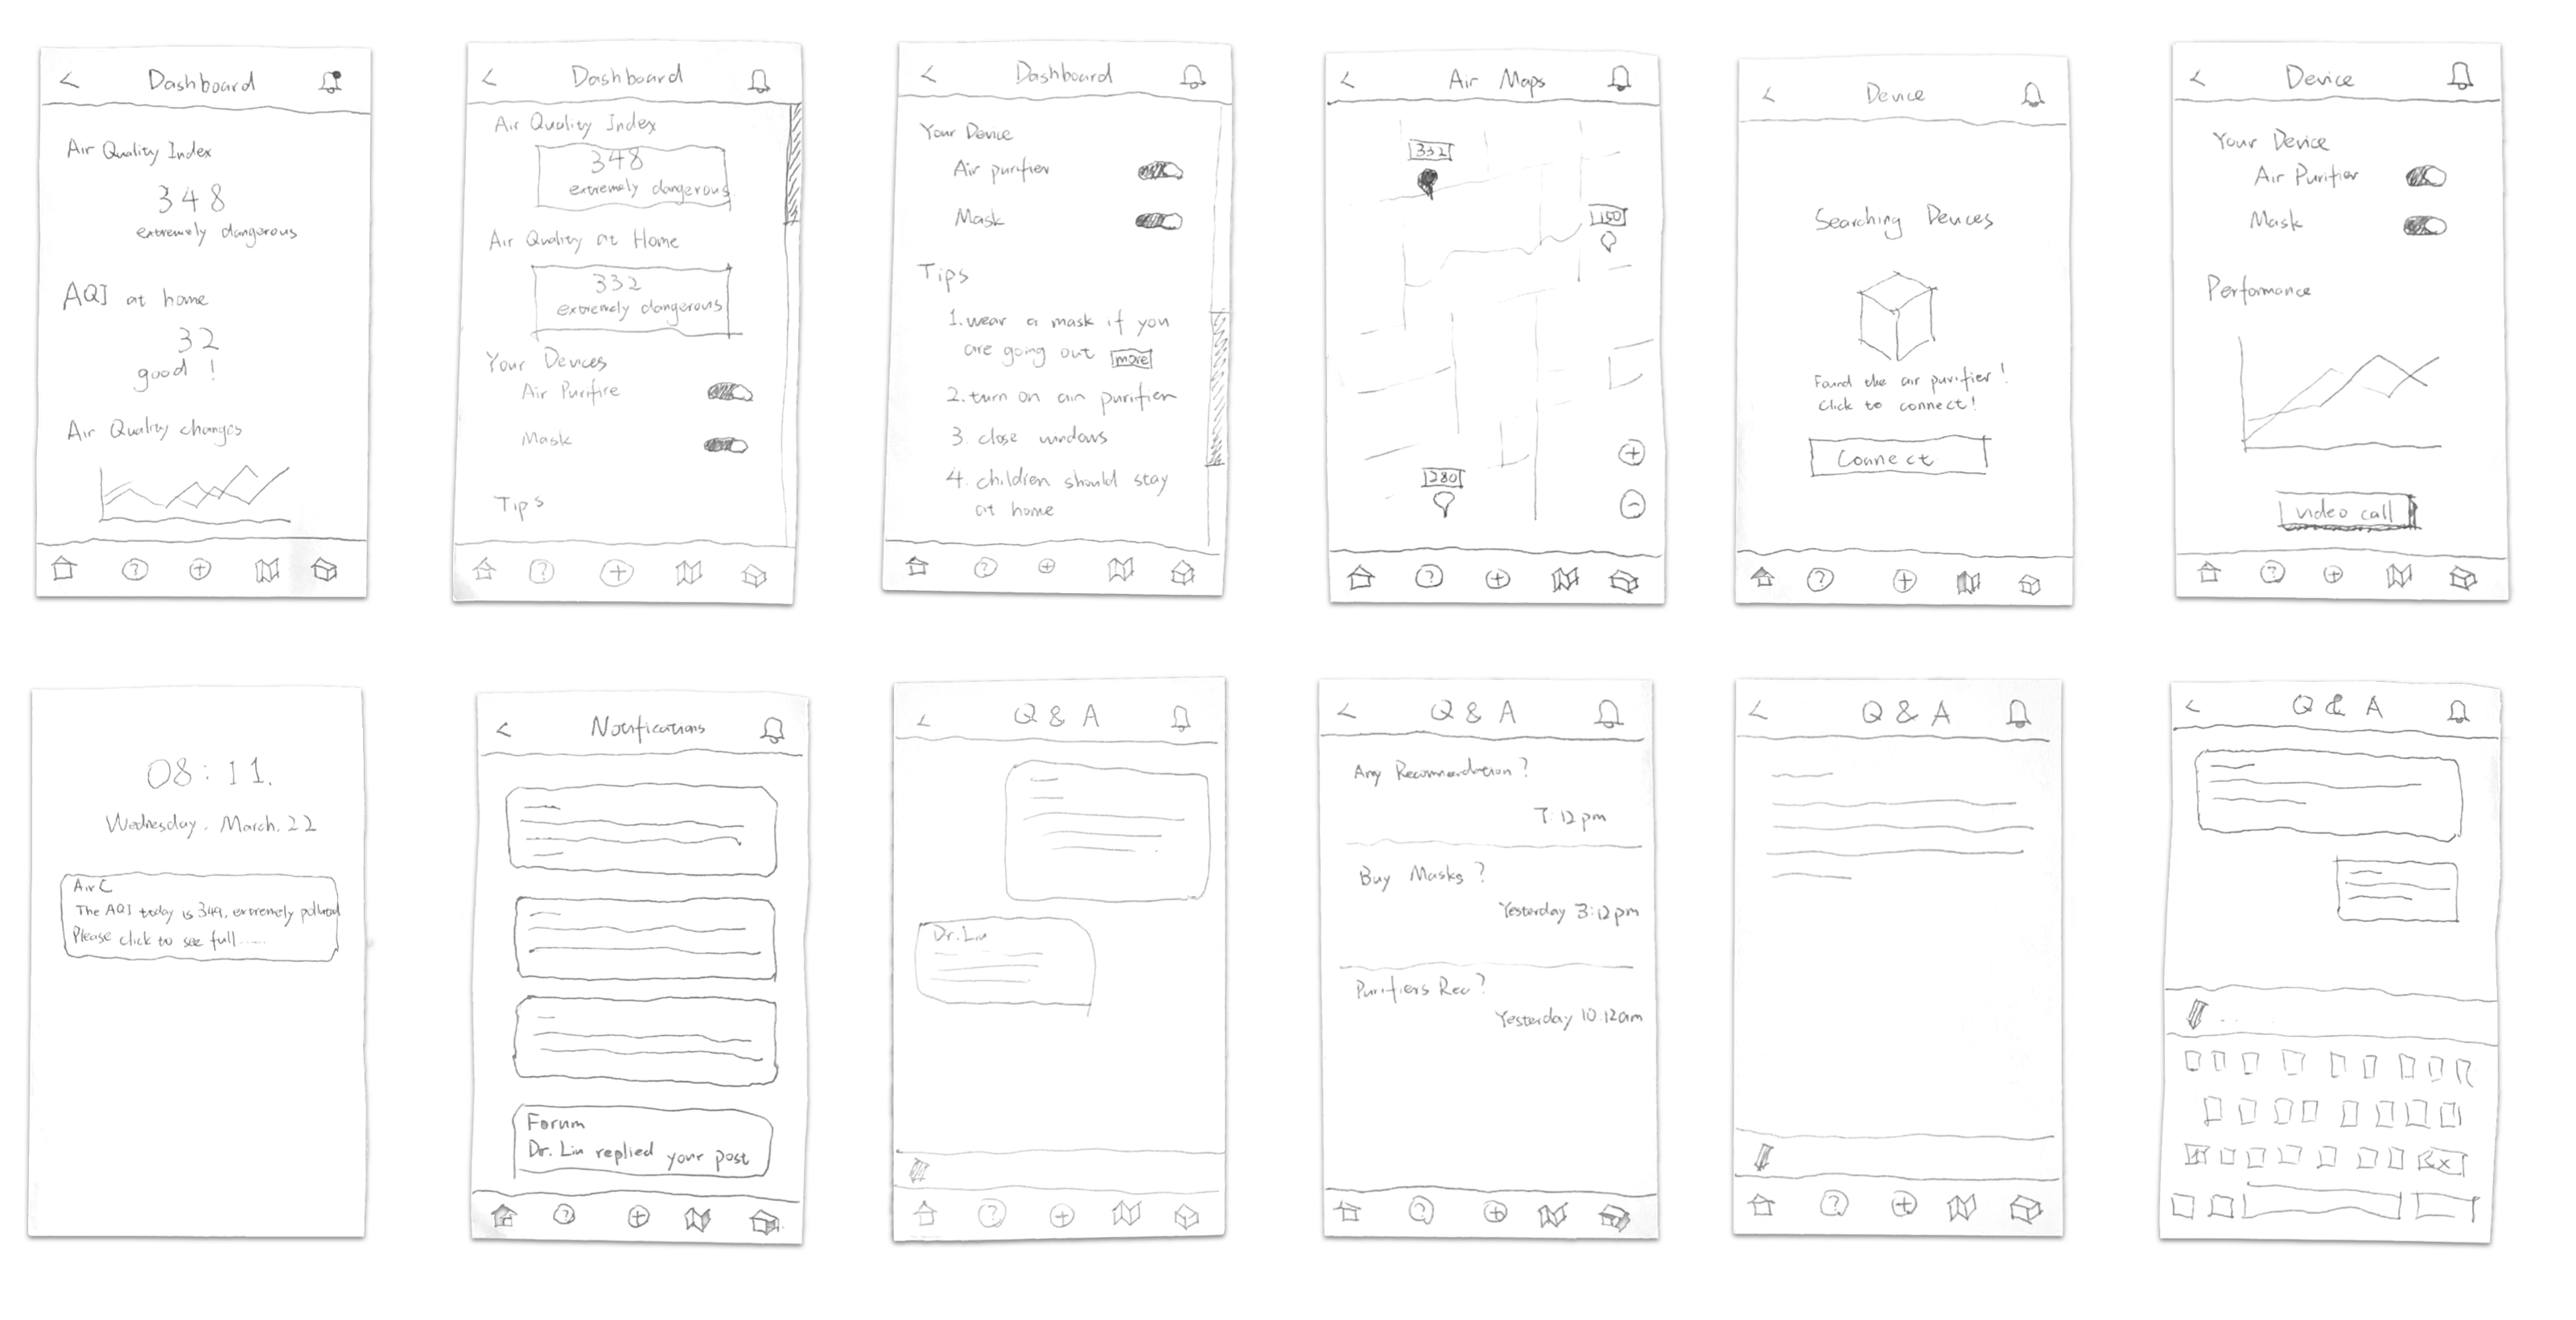 Dashboard
Air Quality Index
348
extremely dangerous
AQI at home
32
good !
Air Quality changes
Dashboard
Air Quality Index
348
extremely dangerous
Air Quality at Home
332
extremely dangerous
Your Devices
Air Purifire
Mask
Tips
Dashboard
Your Device
Air purifier
Mask
Tips
1. wear a mask if you
are going out more
2. turn on air purifier
3. close windows
4. children should stay
at home
Air Maps
332
150
280
Device
Searching Devices
Found the air purifier !
Click to connect !
Connect
Device
Your Device
Air Purifier
Mask
Performance
video call
08:11.
Wednesday. March. 22
AirC
The AQI today is 349, extremely polluted
Please click to see full ......
Notifications
Forum
Dr. Liu replied your post
Q & A
Dr. Liu
Q & A
Any Recommendation ?
7:12 pm
Buy Masks ?
Yesterday 3:12pm
Purifiers Rec ?
Yesterday 10:12am
Q & A
Q & A